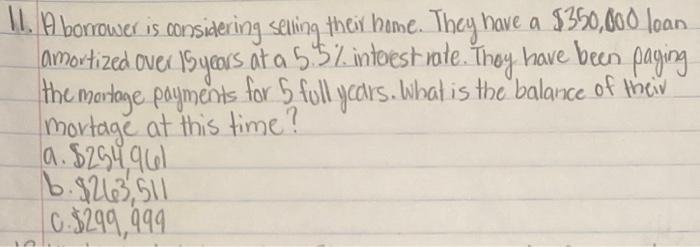 11. A borrower is considering selling their home. They have a $350,000 loan
amortized over 15 years at a 5.5% interest rate. They have been paying
the mortage payments for 5 full years. What is the balance of their
mortage at this time?
a. $254,961
b. $263,511
c. $299,999